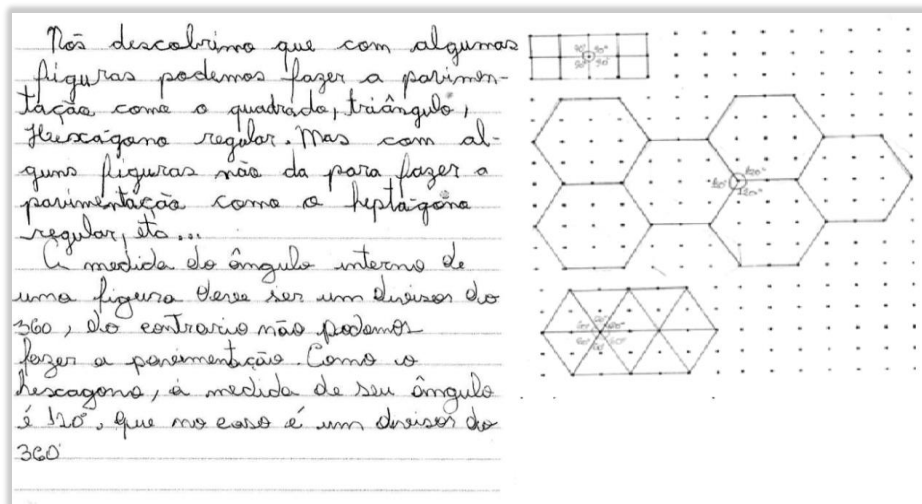 Nós descobrimo que com algumas
figuras podemos fazer a pavimen-
tação come o quadrado, triângulo,
Hexágono regular. Mas com al-
guns figuras não da para fazer a
pavimentação como o heptágono
regular, etc...
A medida do ângulo interno de
uma figura deve ser um divisor do
360, do contrario não podemos
fazer a pavimentação. Como o
hexcagono, a medida de seu ângulo
é 120°, que no caso é um divisor do
360
90° 90°
90° 90°
120°
120°
60°
60°